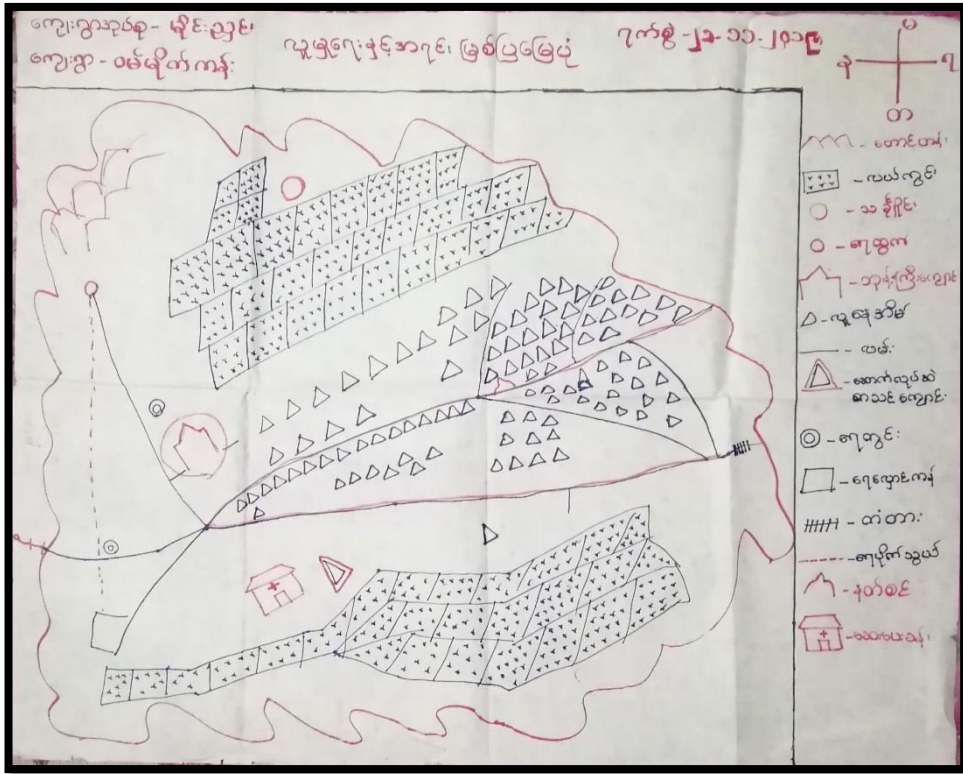 ကျေးရွာအုပ်စု - မိုင်းညှင်း
ကျေးရွာ - ဝမ်မိုက်ကန်း
လူမှုရေးနှင့်အရင်းမြစ်ပြမြေပုံ
ရက်စွဲ - ၂၁-၁၁-၂၀၁၉
မ
န
ရ
တ
- တောင်တန်း
- လယ်ကွင်း
- သင်္ချိုင်း
- ရေထွက်
- ဘုန်းကြီးကျောင်း
- လူနေအိမ်
- လမ်း
- ဆောက်လုပ်ဆဲ
စာသင်ကျောင်း
- ရေတွင်း
- ရေလှောင်ကန်
- တံတား
- ရေပိုက်သွယ်
- နတ်စင်
- ဆေးပေးခန်း